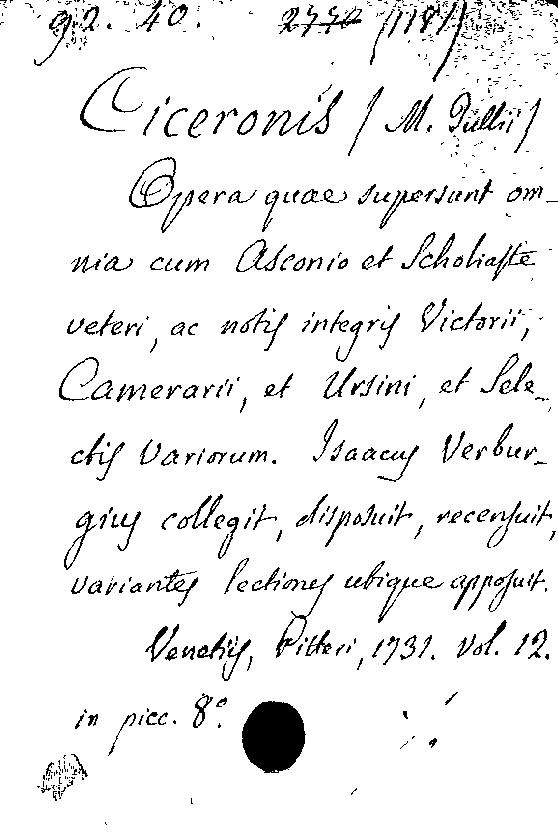 92. 40. 2772 (118)
Ciceronis (M. Tullii)
Opera quae supersunt om-
nia cum Asconio et Scholiaste
veteri, ac notis integris Victorii,
Camerarii, et Ursini, et Sele-
ctis Variorum. Isaacus Verbur-
gius collegit, disposuit, recensuit,
variantes lectiones ubique apposuit.
Venetiis, Pitteri, 1731. Vol. 12.
in picc. 8°.